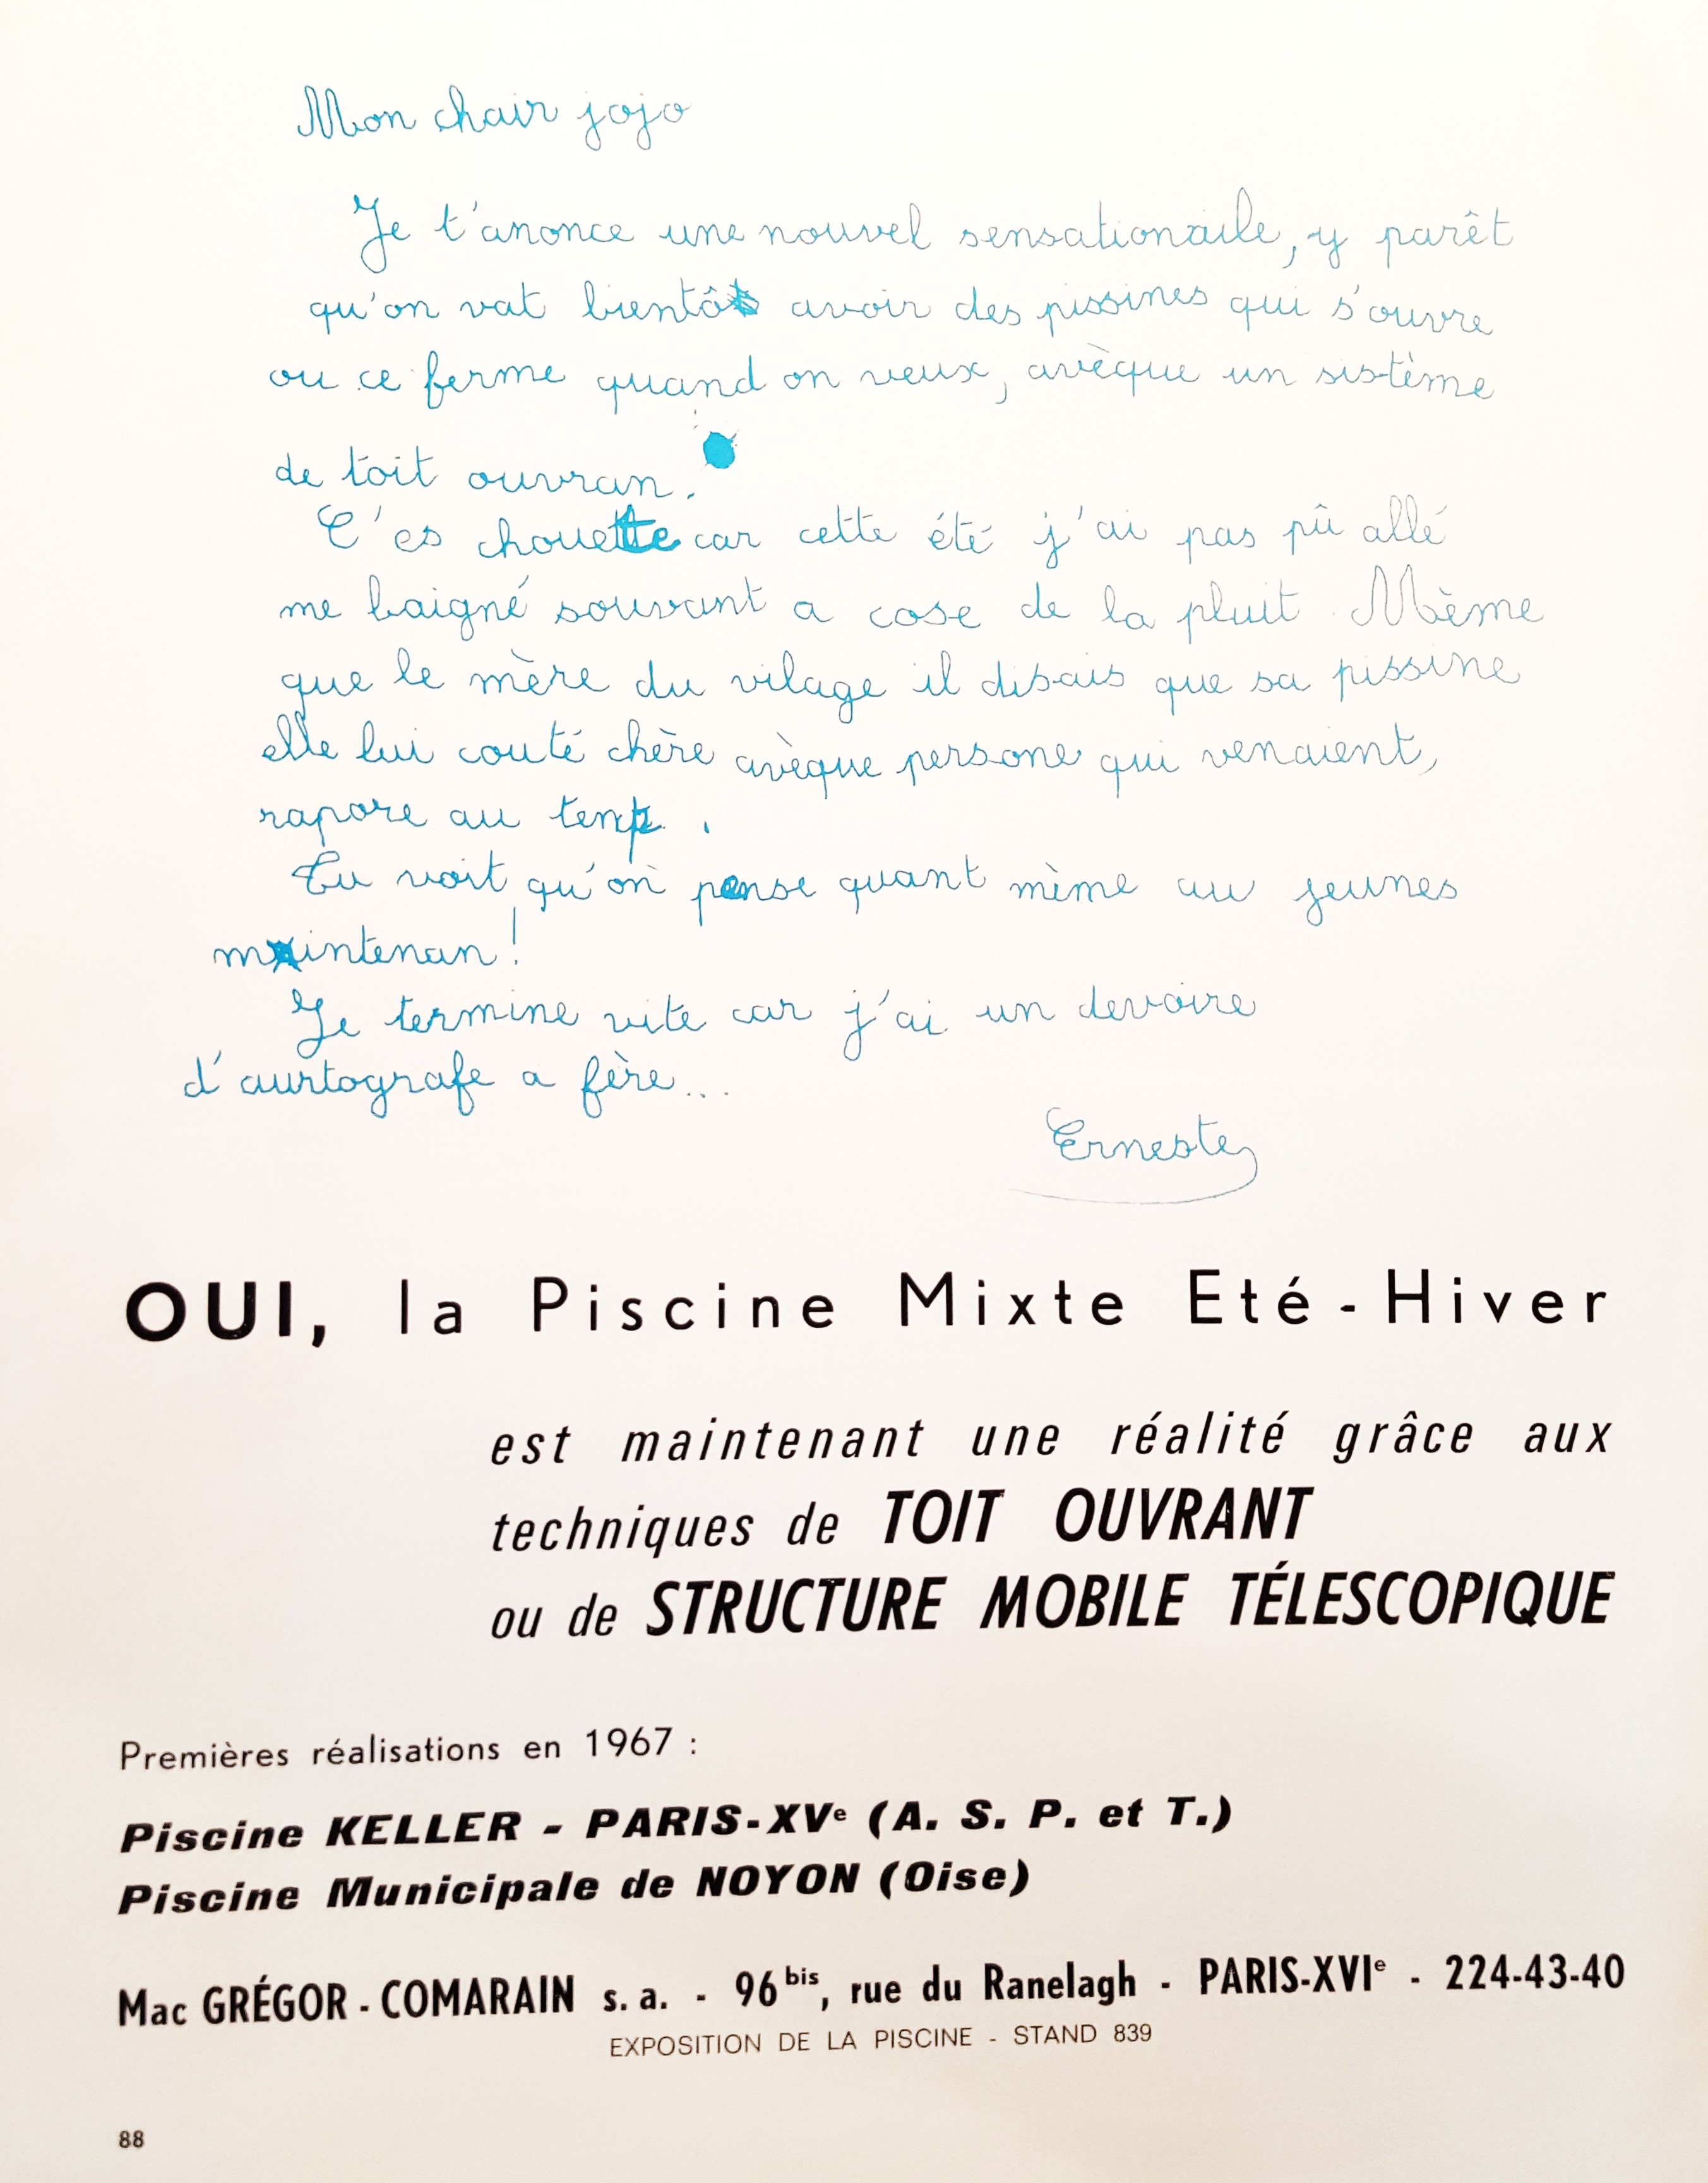 Mon chair jojo
Je t'anonce une nouvel sensationaile, y parêt
qu'on vat bientôt avoir des pissines qui s'ouvre
ou ce ferme quand on veux, avèque un sistème
de toit ouvran.
C'es chouette car cette été j'ai pas pû allé
me baigné souvant a cose de la pluit. Mème
que le mère du vilage il disais que sa pissine
elle lui couté chère avèque persone qui venaient,
rapore au temp.
Tu voit qu'on pense quant mème au jeunes
maintenan!
Je termine vite car j'ai un devoire
d'aurtografe a fère...
Erneste
OUI, la Piscine Mixte Eté-Hiver
est maintenant une réalité grâce aux
techniques de TOIT OUVRANT
ou de STRUCTURE MOBILE TÉLESCOPIQUE
Premières réalisations en 1967 :
Piscine KELLER - PARIS-XVe (A. S. P. et T.)
Piscine Municipale de NOYON (Oise)
Mac GRÉGOR - COMARAIN s. a. - 96 bis, rue du Ranelagh - PARIS-XVIe - 224-43-40
EXPOSITION DE LA PISCINE - STAND 839
88